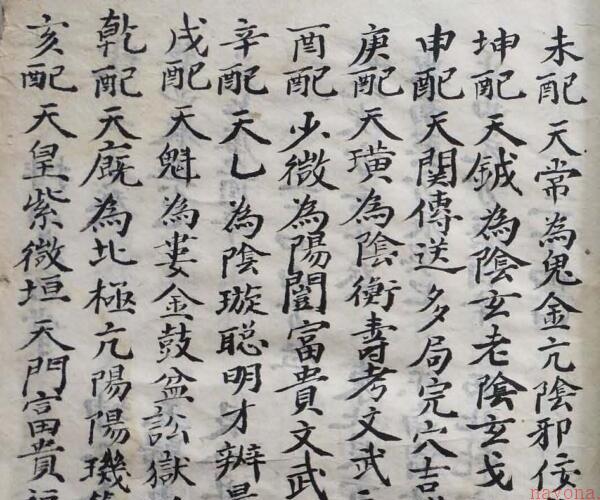 未配天常為鬼金亢陰邪佞
坤配天鉞為陰玄老陰玄戈
申配天関傳送多局完穴吉
庚配天璜為陰衡壽考文武
酉配少微為陽闓富貴文武
辛配天乙為陰璇聰明才辨
戌配天魁為婁金鼓盆訟獄
乾配天廐為北極亢陽陽璣
亥配天皇紫微垣天門富貴
nayona